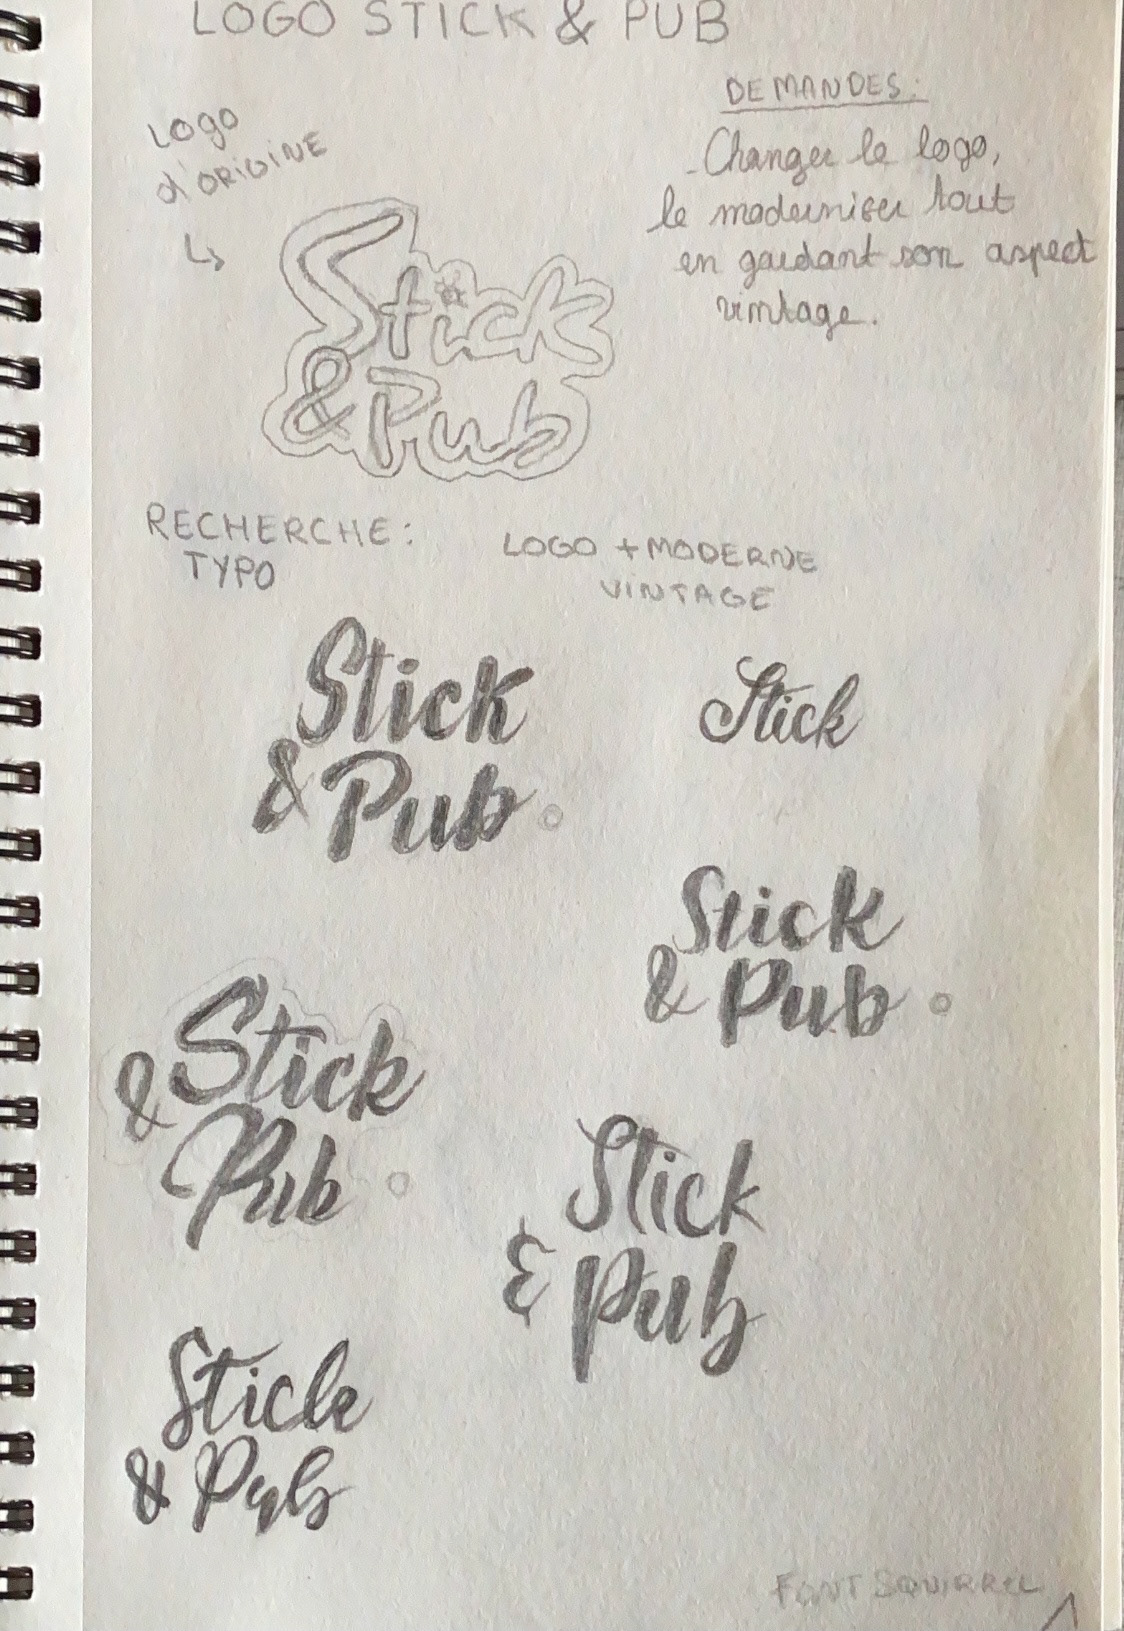 LOGO STICK & PUB
DEMANDES:
- Changer le logo,
le moderniser tout
en gardant son aspect
vintage.
Logo
d'ORiGiNE
Stick
& Pub
RECHERCHE:
TYPO
LOGO + MODERNE
ViNTAGE
Stick
& Pub
Stick
Stick
& Pub
& Stick
Pub
Stick
& Pub
Stick
& Pub
FONT SQUIRREL